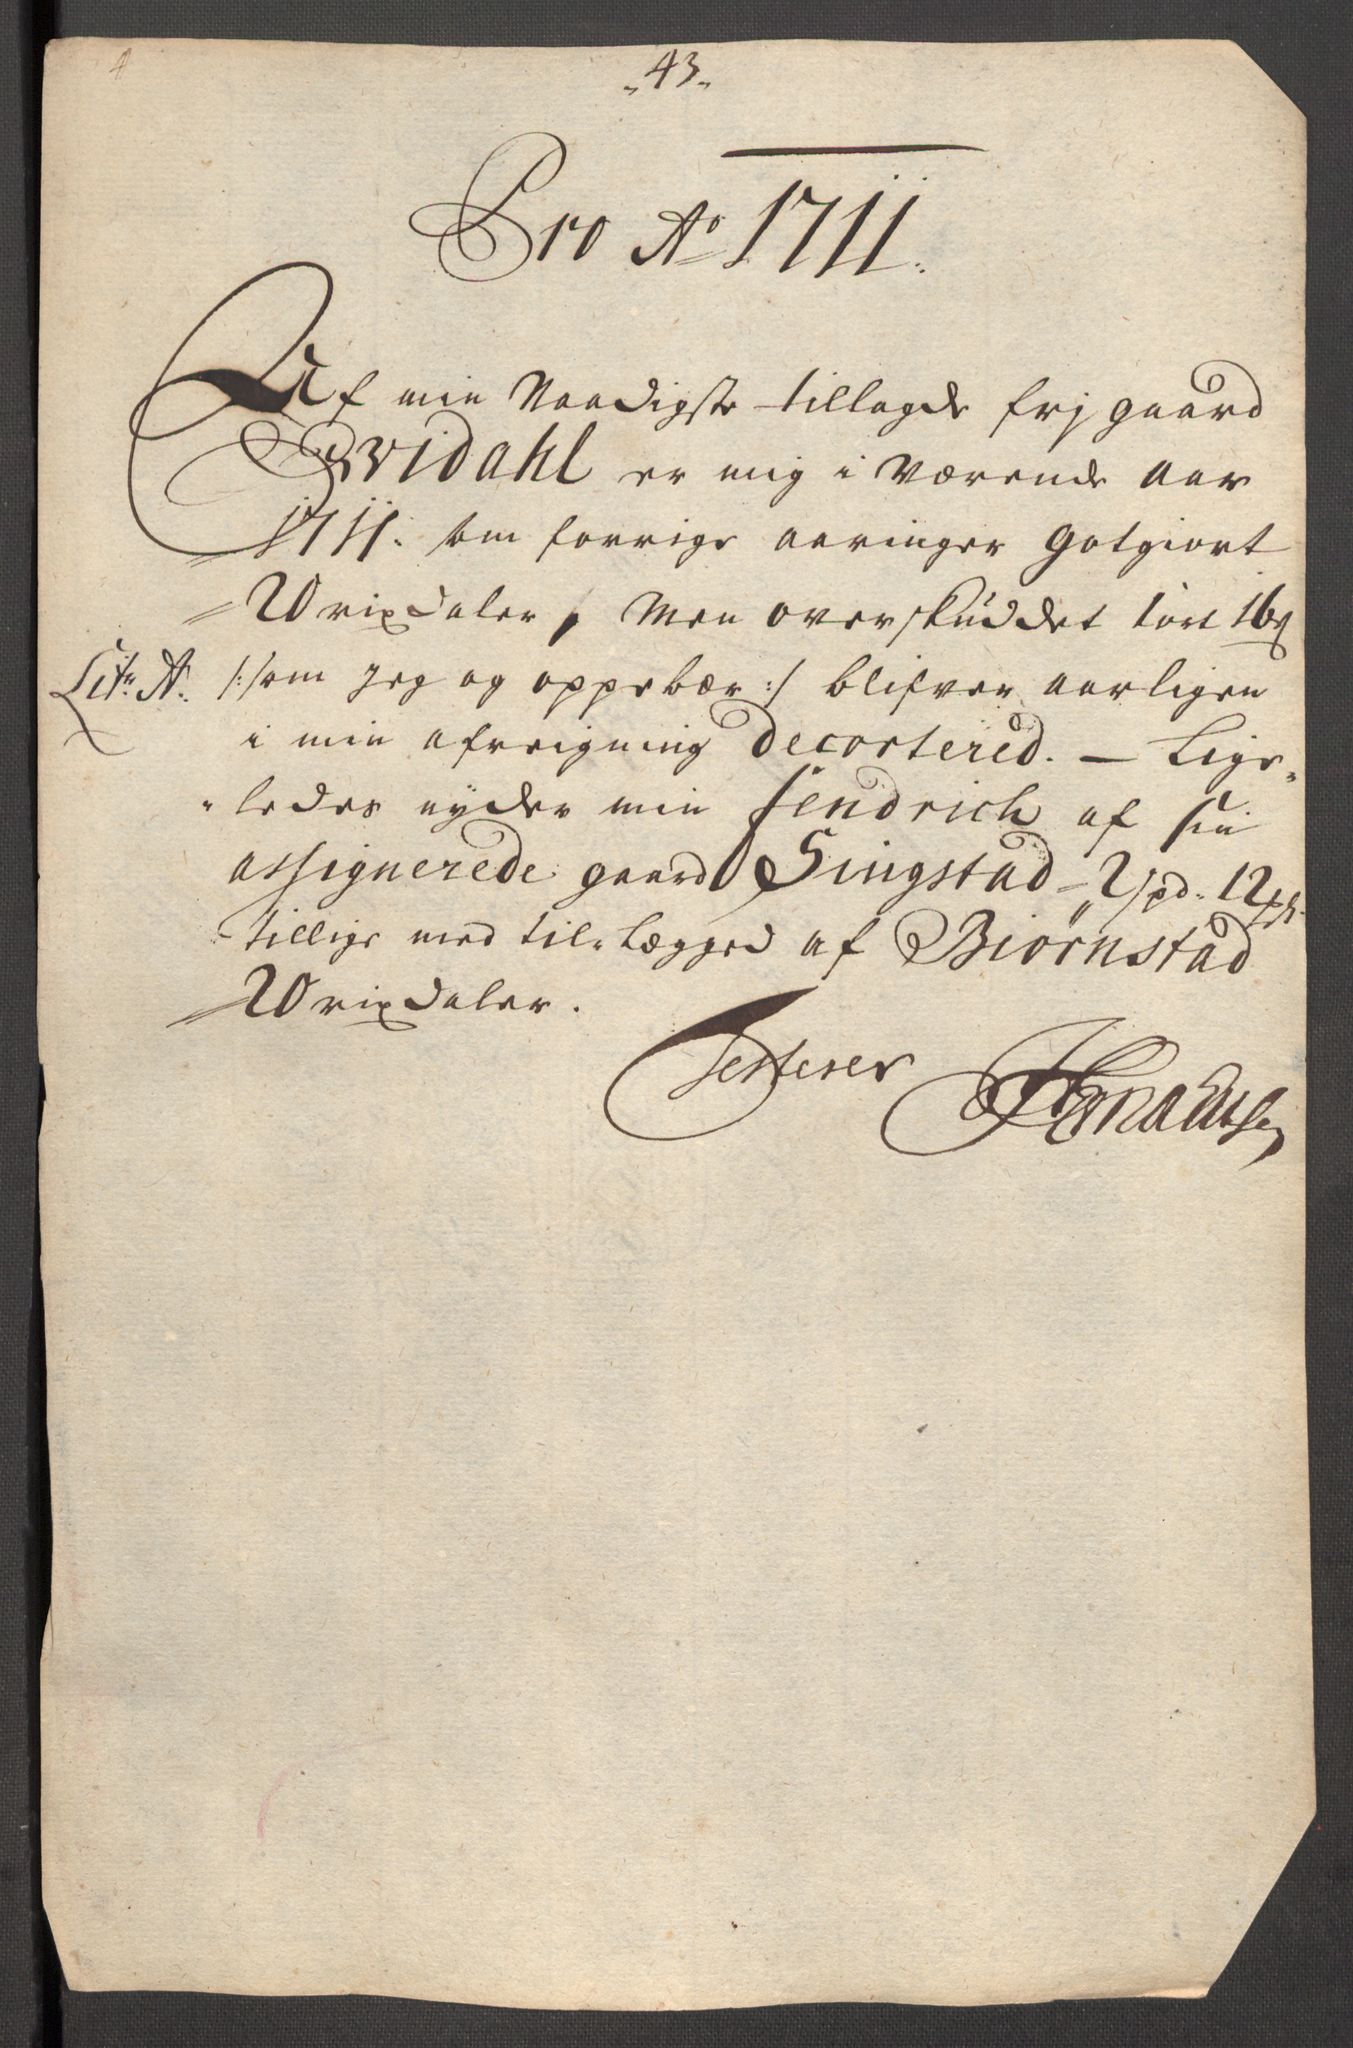 „43„
Pro Ao 1711.
Af min Naadigste tillagde frj gaard
Qvidahl er mig i Værende aar
1711. som forrige aaringer gotgiort
20 rixdaler, Men overskuddet 1 ort 16 s
Litr. A. /: som jeg og oppebær :/ blifver aarligen
i min afreigning decortered. — Lige„
„ledes nyder min fendrich af sin
assignerede gaard Singstad 2 spd. 12 s
tillige med til„Legged af Biörnstad
20 rixdaler.
Testerer